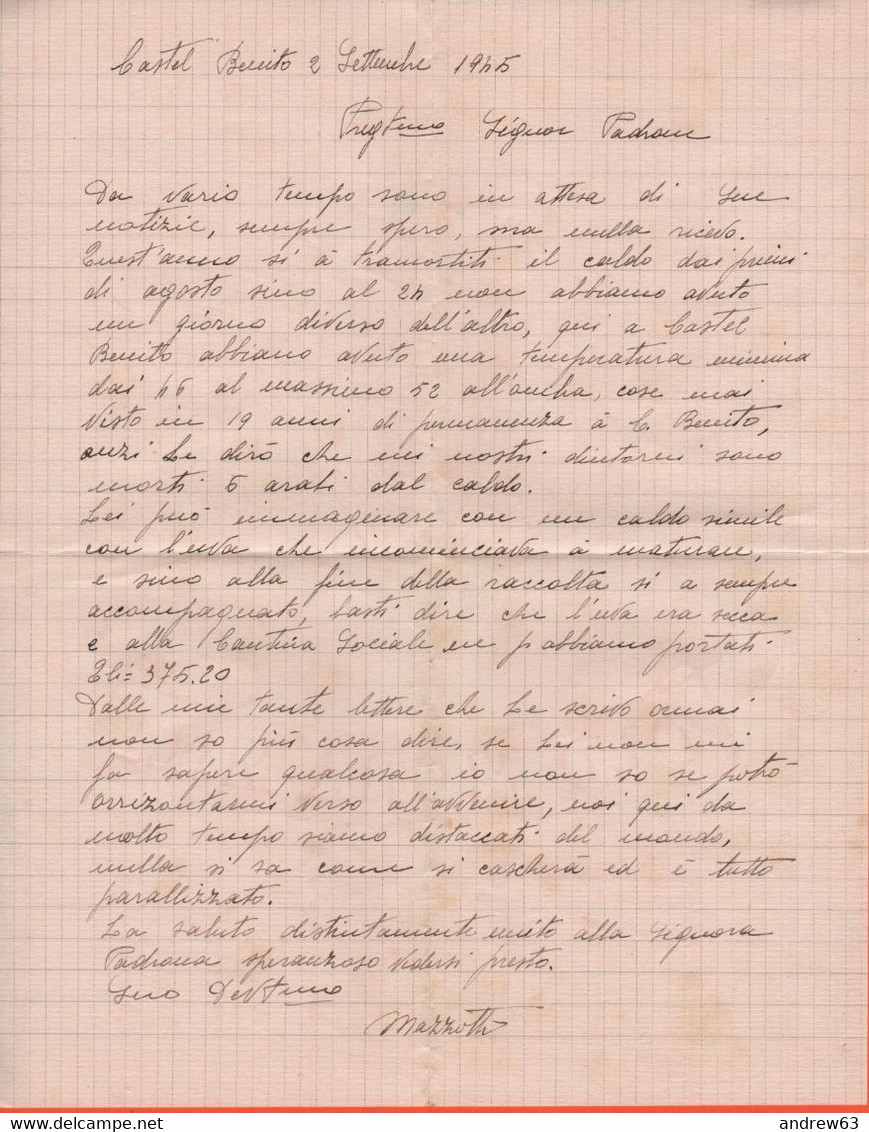 Castel Benito 2 Settembre 1945
Pregt.mo Signor Padrone
Da vario tempo sono in attesa di Sue
notizie, sempre spero, ma nulla ricevo.
Quest'anno si à tramortiti il caldo dai primi
di agosto sino al 24 non abbiamo avuto
un giorno diverso dell'altro, qui a Castel
Benito abbiamo avuto una temperatura minima
dai 46 al massimo 52 all'ombra, cose mai
visto in 19 anni di permanenza à C. Benito,
anzi Le dirò che nei nostri dintorni sono
morti 5 arabi dal caldo.
Lei può immaginare con un caldo simile
con l'uva che incominciava à maturare,
e sino alla fine della raccolta si a sempre
accompagnato, basti dire che l'uva era secca
e alla Cantina Sociale ne abbiamo portati
375.20
Dalle mie tante lettere che Le scrivo ormai
non so più cosa dire, se Lei non mi
fa sapere qualcosa io non so se potrò
orrizontarmi verso all'avvenire, noi qui da
molto tempo siamo distaccati del mondo,
nulla si sa come si cascherà ed è tutto
parallizzato.
La saluto distintamente unito alla Signora
Padrona speranzoso vedersi presto.
Suo Devt.mo
Mazzotti
www.delcampe.net
andrew63